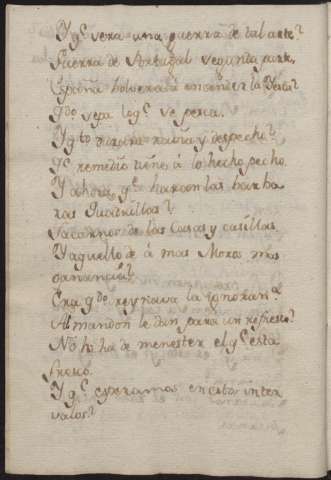 Y q.e vera una guerra de tal arte?
Guerra de Portugal segunda parte,
España bolverá à encender la
q.do sepa lo q.e se pesca.
Y q.to durará rabia y despecho?
Y q.e remedio tiene à lo hecho pecho.
Y ahora q.e haràn las barba
ras Quadrillas?
Sacarnos de las Casas y casillas.
Y aquello de à mas Moros mas
ganancia?
Era q.do reynava la ignoran.a
Al mandòn le dàn para un refresco?
No ha de menester el q.e està
fresco.
Y q.e esperamos en este inter
valos?